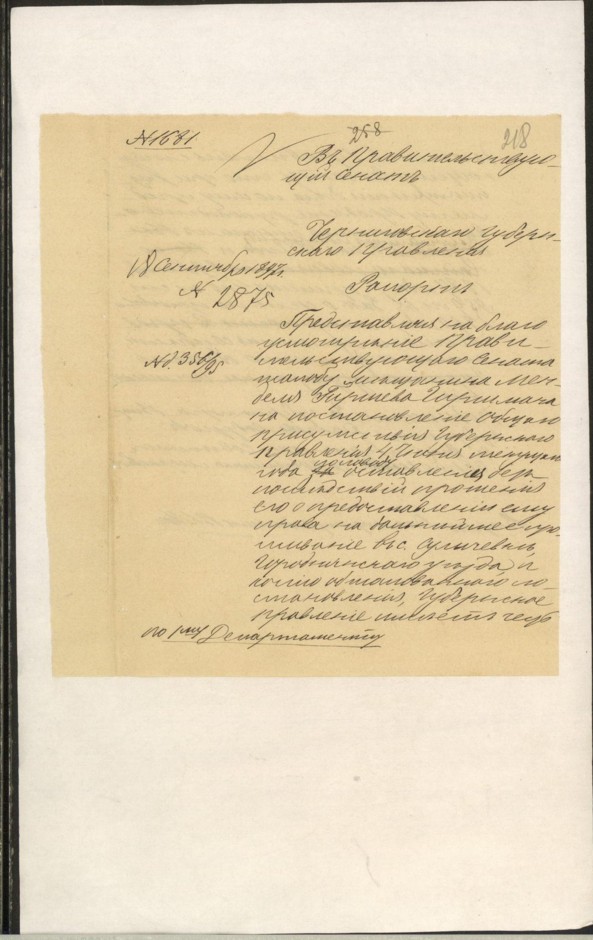 № 1681
258
218
Въ Правительствую-
щій Сенатъ
Черниговскаго Губерн-
скаго Правленія
18 Сентября 1897 г.
№ 2875
Рапортъ
Представляя на благо
усмотрѣніе Прави-
№ д. 356/95
тельствующаго Сената
жалобу мѣщанина Мен-
деля
на постановленіе Общаго
присутствія Губернскаго
Правленія 4 Іюня текущаго
года по поводу оставленія безъ
послѣдствій прошенія
его о предоставленіи ему
права на дальнѣйшее про-
живаніе въ с.
Городнянскаго уѣзда и
копію обжалованнаго по-
становленія, Губернское
Правленіе имѣетъ честь
по 1му Департаменту